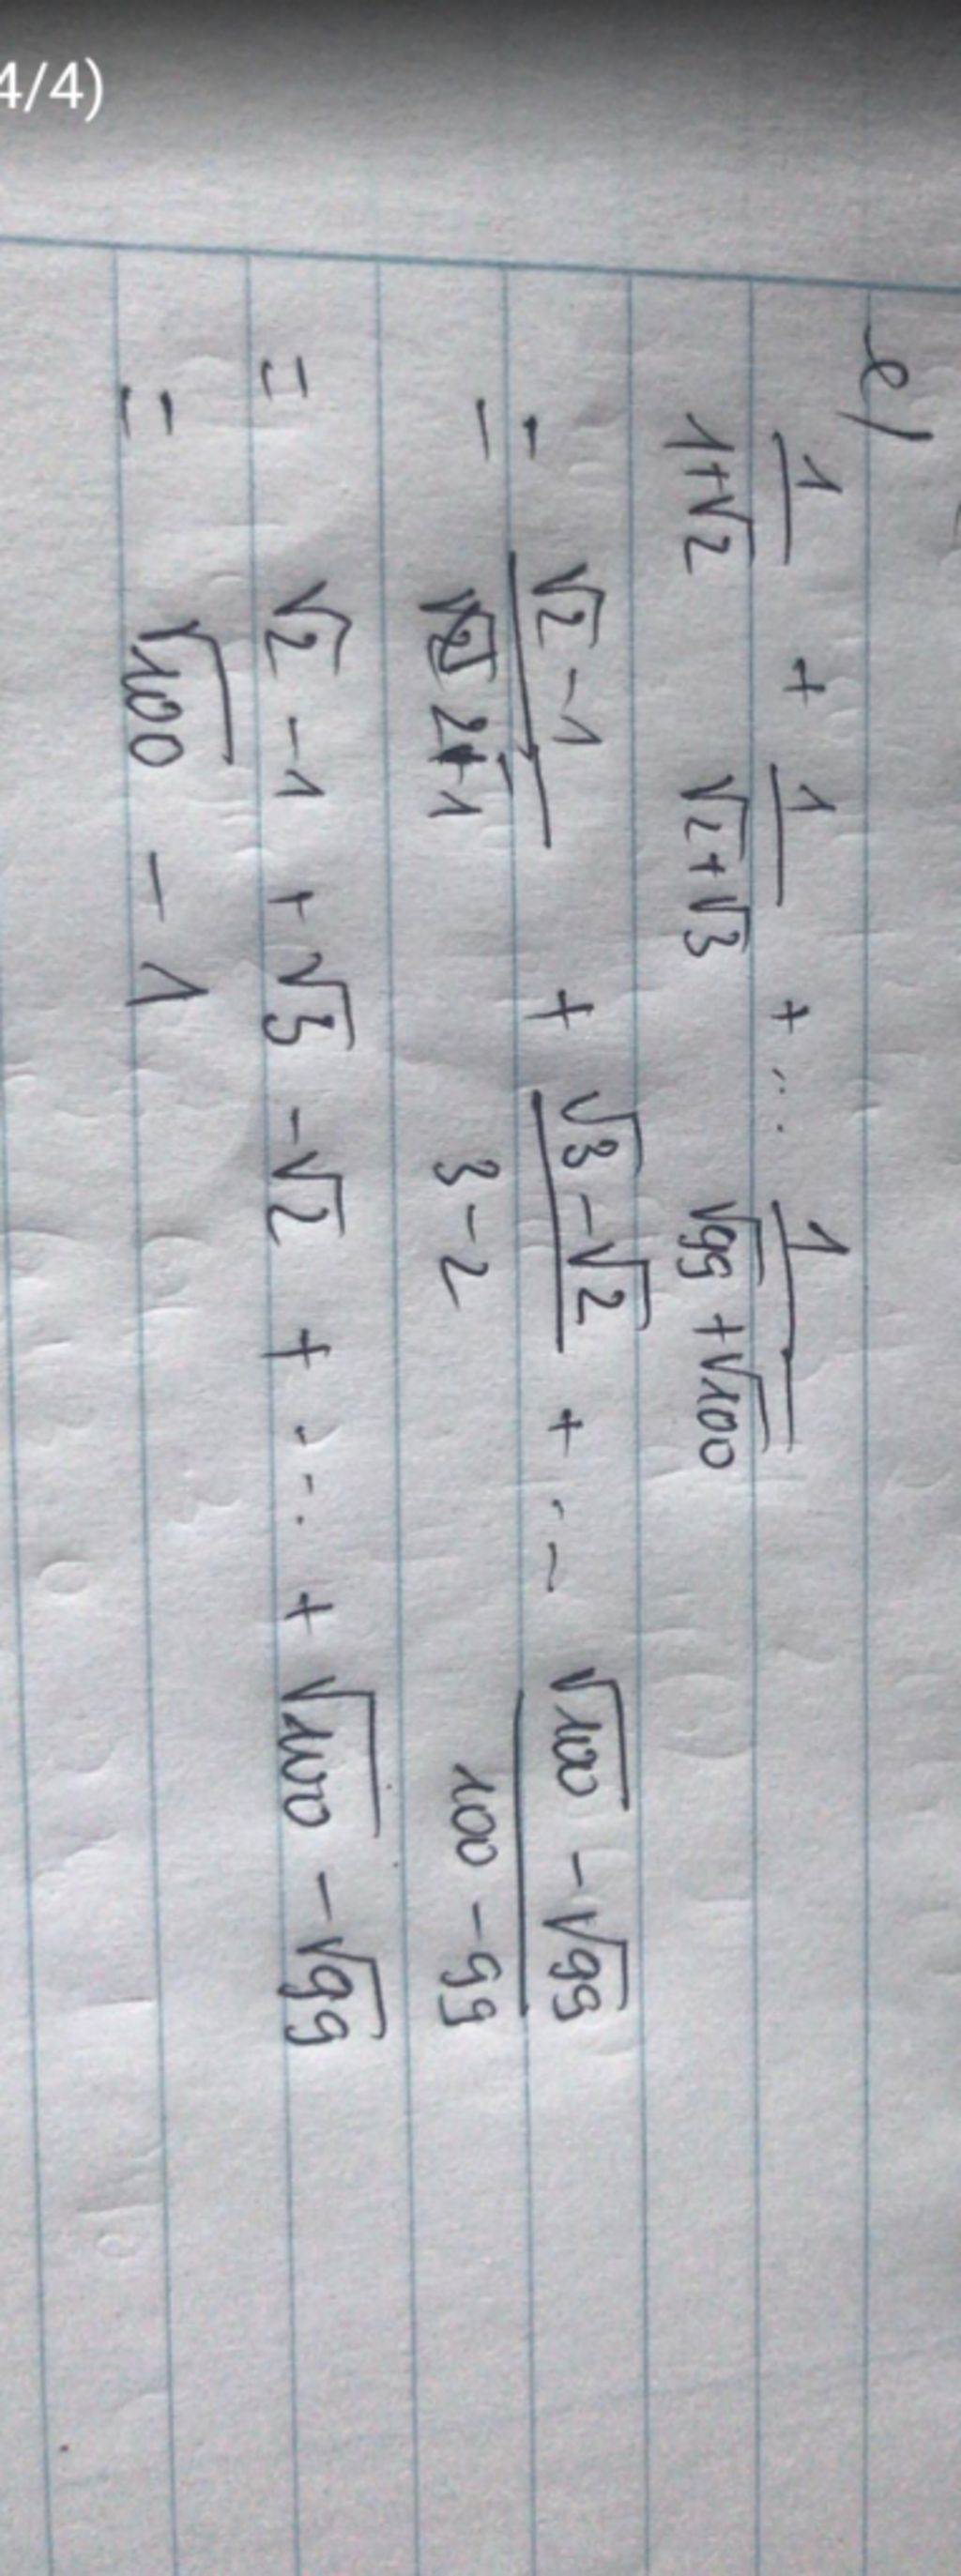 4/4)
e)
1/(1+√2) + 1/(√2+√3) + ... 1/(√99 +√100)
= (√2 -1)/(2-1) + (√3 -√2)/(3-2) + ... (√100 -√99)/(100 -99)
= √2 -1 + √3 -√2 + ... + √100 -√99
= √100 - 1